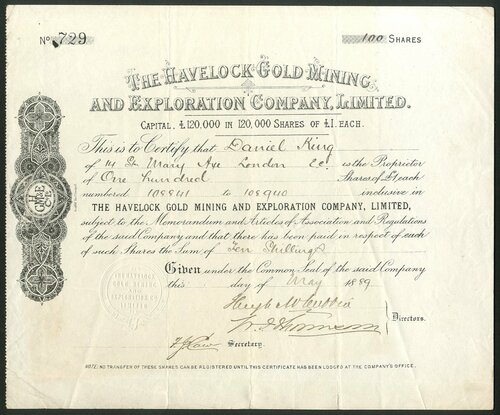 No 729
100 SHARES
THE HAVELOCK GOLD MINING
AND EXPLORATION COMPANY, LIMITED.
CAPITAL, £120,000 IN 120,000 SHARES OF £1. EACH.
This is to Certify that Daniel King
of 14 St Mary Axe London E.C. is the Proprietor
of One hundred Shares of £1 each
numbered 108841 to 108940 inclusive in
THE HAVELOCK GOLD MINING AND EXPLORATION COMPANY, LIMITED,
subject to the Memorandum and Articles of Association and Regulations
of the said Company and that there has been paid in respect of each
of such Shares the Sum of Ten Shillings
Given under the Common Seal of the said Company
this day of May 1889
Directors.
Secretary.
THE HAVELOCK
GOLD MINING
AND
EXPLORATION
COMPANY
LIMITED
NOTE: NO TRANSFER OF THESE SHARES CAN BE REGISTERED UNTIL THIS CERTIFICATE HAS BEEN LODGED AT THE COMPANY'S OFFICE.